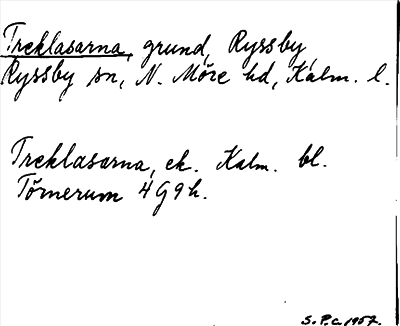 Treklasarna, grund, Ryssby,
Ryssby sn, N. Möre hd, Kalm. l.
Treklasarna, ek. Kalm. bl.
Törnerum 4G9h.
S.P.C. 1957.